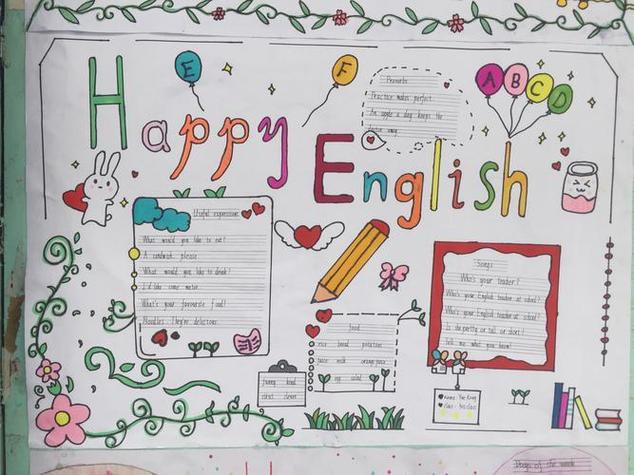 E
F
A B C D
Happy
English
Proverb
Practice makes perfect
An apple a day keeps the
away
Useful expressions
What would you like to eat?
A sandwich please
What would you like to drink?
I'd like some water.
What's your favourite food?
Noodles They're delicious
Songs
Who's your teacher?
Who's your English teacher at school?
Who's your English teacher at school?
Is she pretty or tall or short?
Tell me what you know!
food
rice bead potatoes
juice milk orange juice
egg salad
funny kind
strict clever
name:
class:
of the week